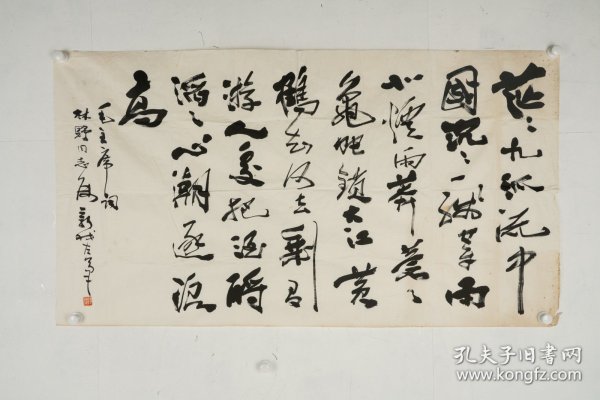 茫〻九派流中
國沉〻一線穿南
北煙雨莽蒼〻
龜蛇鎖大江黄
鶴知何去剩有
游人處把酒酹
滔〻心潮逐浪
高
毛主席詞
林野同志屬
孔夫子旧书网
www.kongfz.com